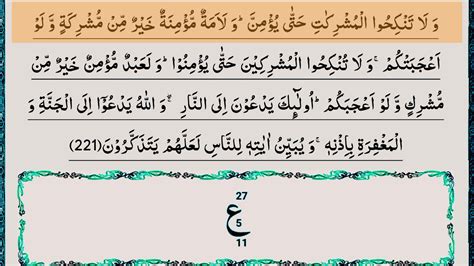 وَ لَا تَنْكِحُوا الْمُشْرِكٰتِ حَتّٰى یُؤْمِنَّ ؕ وَ لَاَمَةٌ مُّؤْمِنَةٌ خَیْرٌ مِّنْ مُّشْرِكَةٍ وَّ لَوْ
اَعْجَبَتْكُمْ ۚ وَ لَا تُنْكِحُوا الْمُشْرِكِیْنَ حَتّٰى یُؤْمِنُوْا ؕ وَ لَعَبْدٌ مُّؤْمِنٌ خَیْرٌ مِّنْ
مُّشْرِكٍ وَّ لَوْ اَعْجَبَكُمْ ؕ اُولٰٓىٕكَ یَدْعُوْنَ اِلَى النَّارِ ۖۚ وَ اللّٰهُ یَدْعُوْۤا اِلَى الْجَنَّةِ وَ
الْمَغْفِرَةِ بِاِذْنِهٖ ۚ وَ یُبَیِّنُ اٰیٰتِهٖ لِلنَّاسِ لَعَلَّهُمْ یَتَذَكَّرُوْنَ(221)
27
ع
5
11